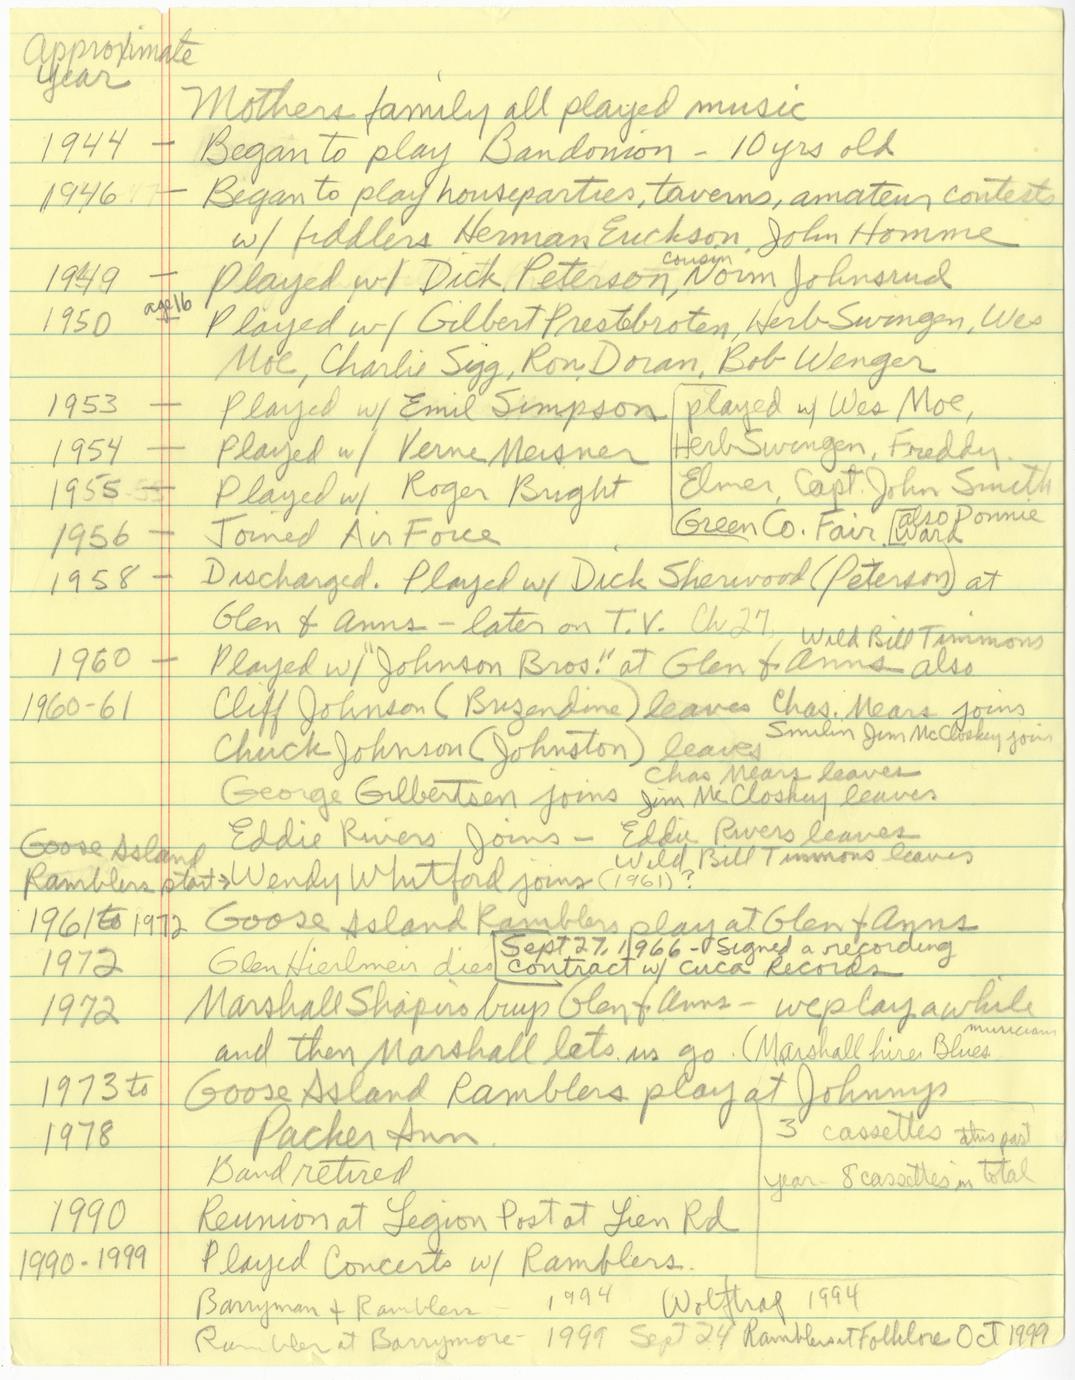 Approximate
year
Mothers family all played music
1944 — Began to play Bandonion - 10 yrs old
1946 — Began to play houseparties, taverns, amateur contests
w/ fiddlers Herman Erickson, John Homme
cousin
1949 — Played w/ Dick Peterson, Norm Johnsrud
1950 age 16 Played w/ Gilbert Prestebroten, Herb Swingen, Wes
Moe, Charlie Sigg, Ron Doran, Bob Wenger
1953 — Played w/ Emil Simpson
1954 — Played w/ Verne Meisner
1955 — Played w/ Roger Bright
played w/ Wes Moe,
Herb Swingen, Freddy
Elmer, Capt. John Smith
Green Co. Fair. also Donnie
Ward
1956 — Joined Air Force
1958 — Discharged. Played w/ Dick Sherwood (Peterson) at
Glen & Anns - later on T.V. Ch 27
Wild Bill Timmons
1960 — Played w/ "Johnson Bros." at Glen & Anns also
1960-61 Cliff Johnson (Buzendine) leaves Chas. Mears joins
Smilin Jim McCloskey join
Chuck Johnson (Johnston) leaves
Chas Mears leaves
George Gilbertsen joins Jim McCloskey leaves
Eddie Rivers Joins - Eddie Rivers leaves
Wild Bill Timmons leaves
Goose Island
Ramblers start → Wendy Whitford joins (1961)?
1961 to 1972 Goose Island Ramblers play at Glen & Anns
1972 Glen Hierlmeir dies
Sept 27, 1966 - Signed a recording
contract w/ Cuca Records
1972 Marshall Shapiro buys Glen & Anns - we play awhile
and then Marshall lets us go. (Marshall hires Blues
musicians
1973 to Goose Island Ramblers play at Johnnys
1978 Packer Inn.
Band retired
3 cassettes this past
year - 8 cassettes in total
1990 Reunion at Legion Post at Lien Rd
1990-1999 Played Concerts w/ Ramblers.
Barryman & Ramblers - 1994 Wolftrap 1994
Rambler at Barrymore - 1999 Sept 24 Ramblers at Folklore Oct 1999